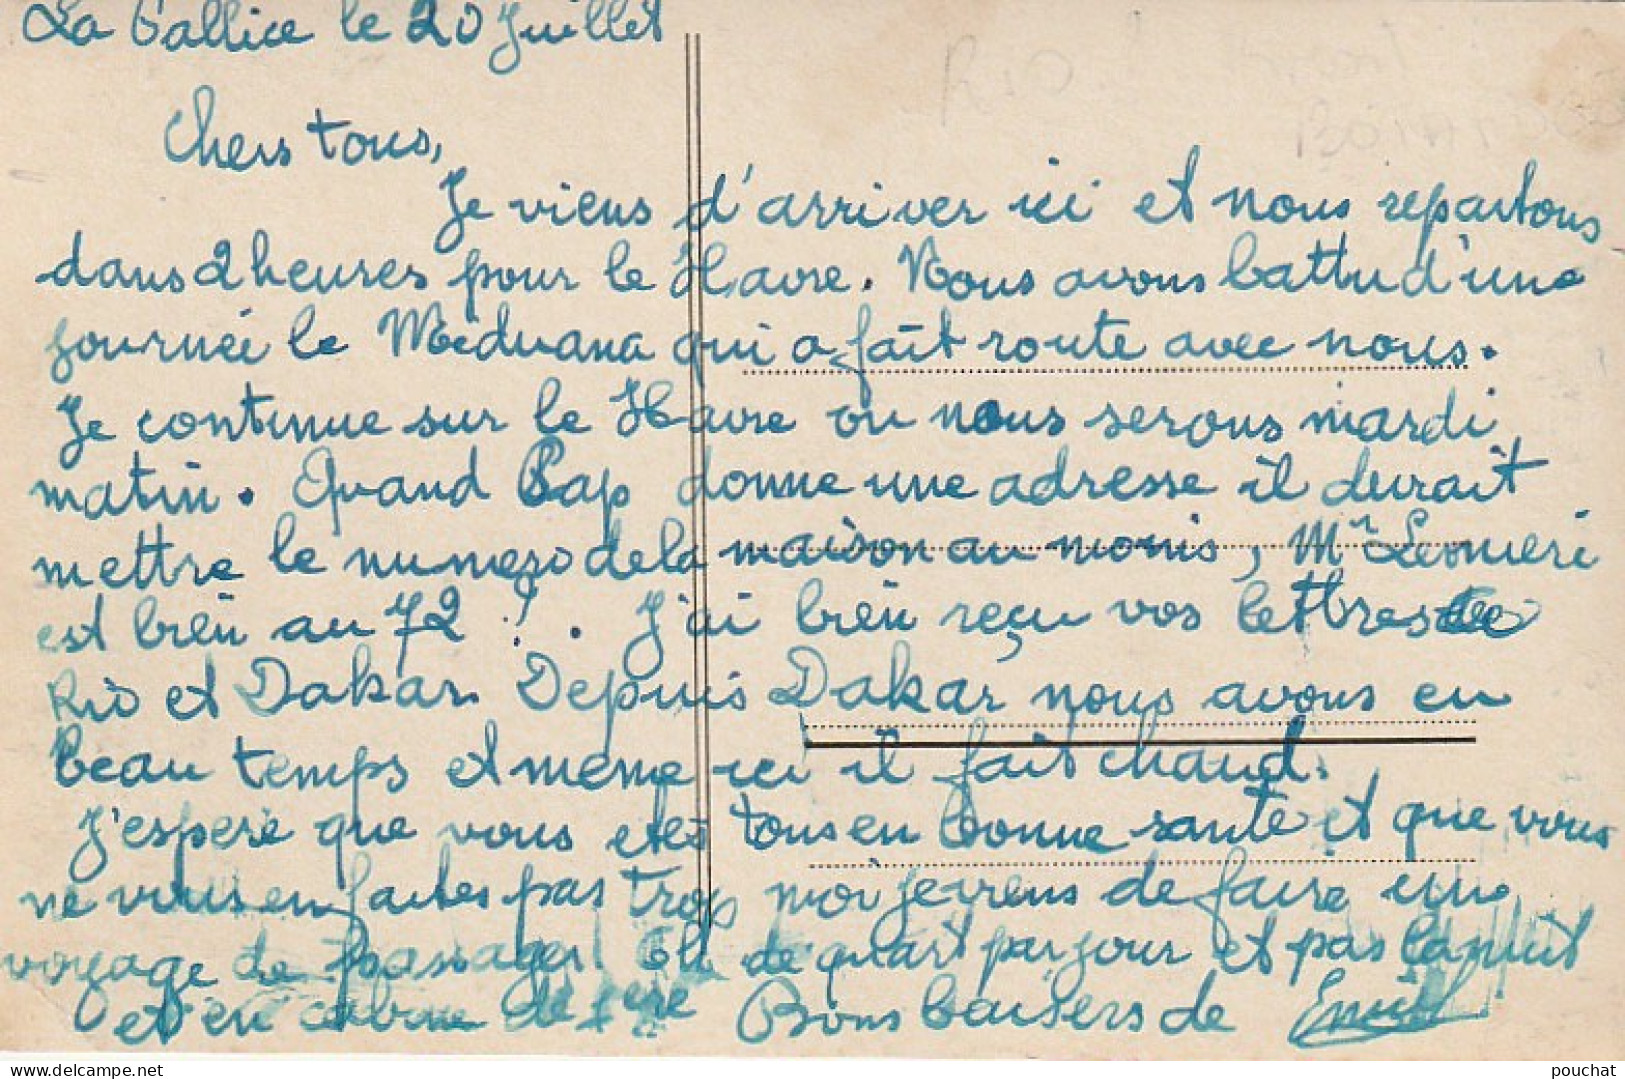 La Pallice le 20 Juillet
RIO
Chers tous,
Je viens d'arriver ici et nous repartons
dans 2 heures pour le Havre. Nous avons battu d'une
journée le Meduana qui a fait route avec nous.
Je continue sur le Havre ou nous serons mardi
matin. Quand Pap donne une adresse il devrait
mettre le numero de la maison au moins, Mr Leonieri
est bien au 72 ! . J'ai bien reçu vos lettres de
Rio et Dakar. Depuis Dakar nous avons eu
beau temps et meme ici il fait chaud.
J'espere que vous etes tous en bonne santé et que vous
ne vous en faites pas trop, moi je viens de faire un
voyage de passager. 6h de quart par jour et pas la nuit
et en cabine de 1ere Bons baisers de Emile
pouchat